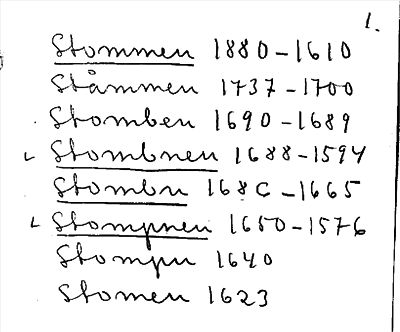 1.
Stommen 1880-1610
Ståmmen 1737-1700
Stomben 1690-1689
Stombnen 1688-1594
Stombn 1686-1665
Stompnen 1650-1576
Stompn 1640
Stomen 1623